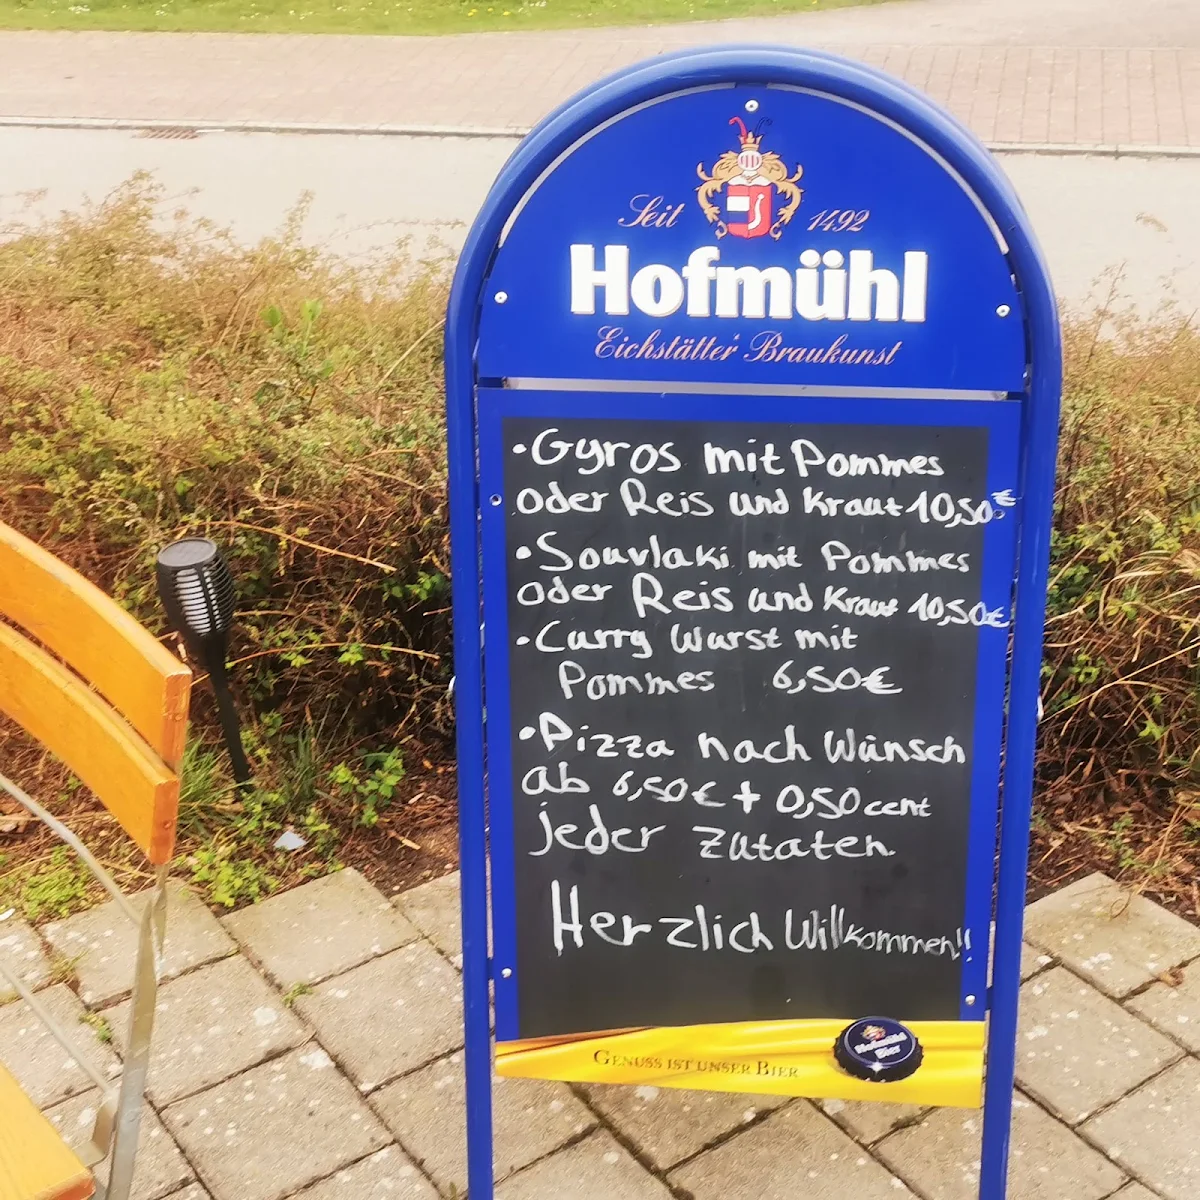 Seit 1492
Hofmühl
Eichstätter Braukunst
•Gyros mit Pommes
oder Reis und Kraut 10,50€
•Souvlaki mit Pommes
oder Reis und Kraut 10,50€
•Curry Wurst mit
Pommes 6,50€
•Pizza nach Wünsch
ab 6,50€ + 0,50 cent
jeder Zutaten.
Herzlich Willkommen!!
GENUSS IST UNSER BIER
Hofmühl
Bier